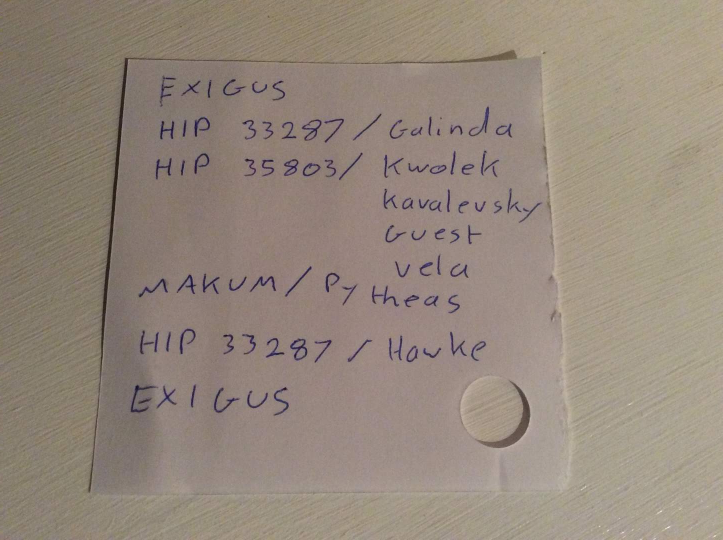 EXIGUS
HIP 33287 / Galinda
HIP 35803/ Kwolek
Kavalevsky
Guest
Vela
MAKUM / Pytheas
HIP 33287 / Hawke
EXIGUS